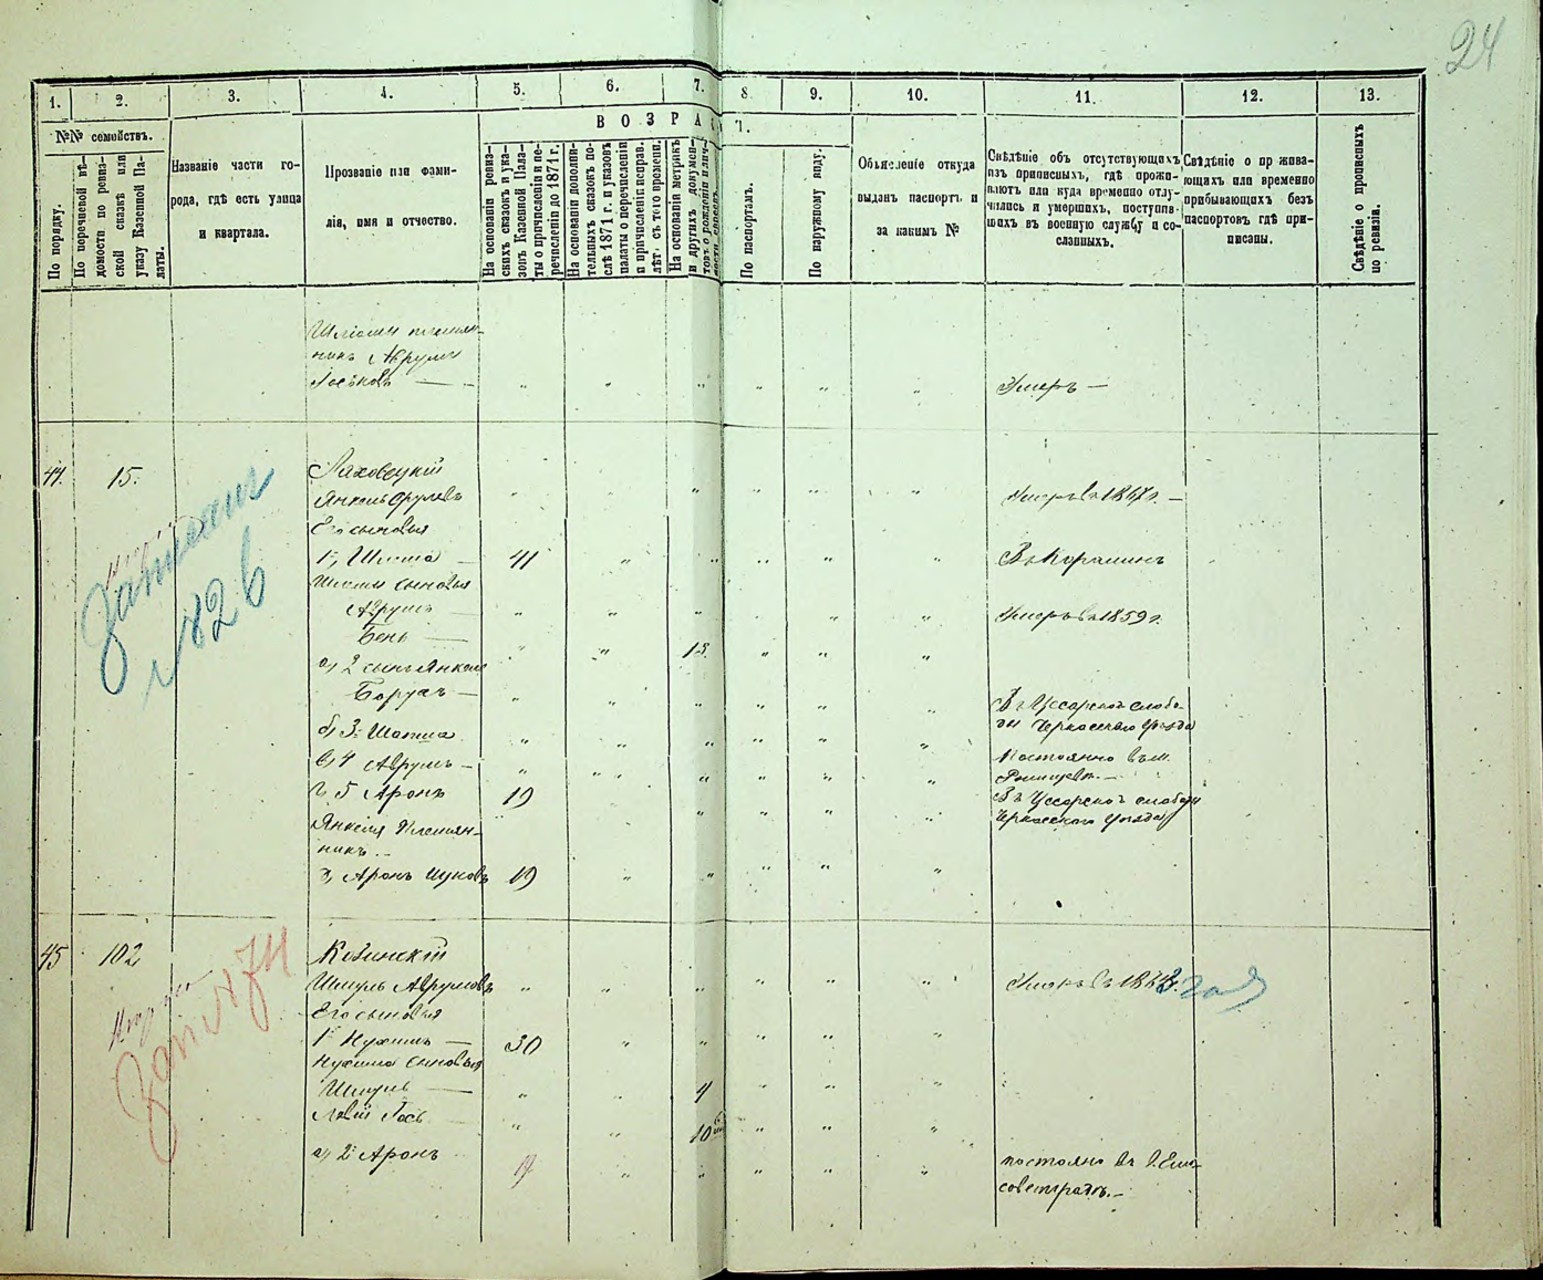 24
1. 2. 3. 4. 5. 6. 7. 8 9. 10. 11. 12. 13.
№№ семействъ.
По порядку.
По перечневой вѣ-
домости по ревиз-
ской сказкѣ или
указу Казенной Па-
латы.
Названіе части го-
рода, гдѣ есть улица
и квартала.
Прозваніе или фами-
лія, имя и отчество.
ВОЗРАСТ.
На основаніи ревиз-
скихъ сказокъ и ука-
зовъ Казенной Пала-
ты о причисленіи и пе-
речисленіи до 1871 г.
На основаніи дополни-
тельныхъ сказокъ по-
слѣ 1871 г. и указовъ
палаты о перечисленіи
и причисленіи исправ.
лѣт. съ того времени.
На основаніи метрикъ
и другихъ докумен-
товъ о рожденіи и лич-
По паспортамъ.
По наружному виду.
Объясленіе откуда
выданъ паспортъ и
за какимъ №
Свѣдѣніе объ отсутствующихъ
изъ приписныхъ, гдѣ прожи-
ваютъ или куда временно отлу-
чились и умершихъ, поступив-
шихъ въ военную службу и со-
сланныхъ.
Свѣдѣніе о прожива-
ющихъ или временно
прибывающихъ безъ
паспортовъ гдѣ при-
писаны.
Свѣдѣніе о прописныхъ
по ревизіи.
Шліомы племян-
никъ Аврумъ
Іоськовъ — Умеръ —
44. 15. Лаховецкій
Янкель Срулевъ Умеръ въ 1867 г. —
Его сыновья
1, Шлиома — 41 Въ Корашинѣ
Шліомы сыновья
Аврумъ — Умеръ въ 1859 г.
Бень — 15
а, 2 сынъ Янкеля
Борухъ — Въ Цесарской слобо-
ды Черкасскаго уѣзда
б, 3. Шапша
в, 4 Аврумъ — Постоянно въ м.
г, 5 Аронъ 19 Въ Цесарской слободы
Черкасскаго уѣзда
Янкеля Племян-
никъ..
Аронъ Ицковъ 19
№ 26
45 102 Ковинскій
Шмуль Аврумовъ Умеръ въ 1873 году
Его сыновья
1. Нухимъ — 30
Нухима сыновья
Шмуль — 4
Левій Іось 10
а, 2. Аронъ 19 постоянно въ г. Ели-
советградѣ. —
Зап № 74